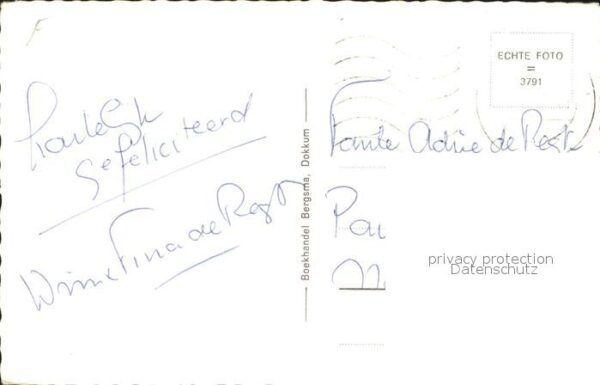 Hartelijk
Gefeliciteerd
Wim Tina de Regt
Boekhandel Bergsma, Dokkum
ECHTE FOTO
=
3791
Tante Adrie de Regt
privacy protection
Datenschutz